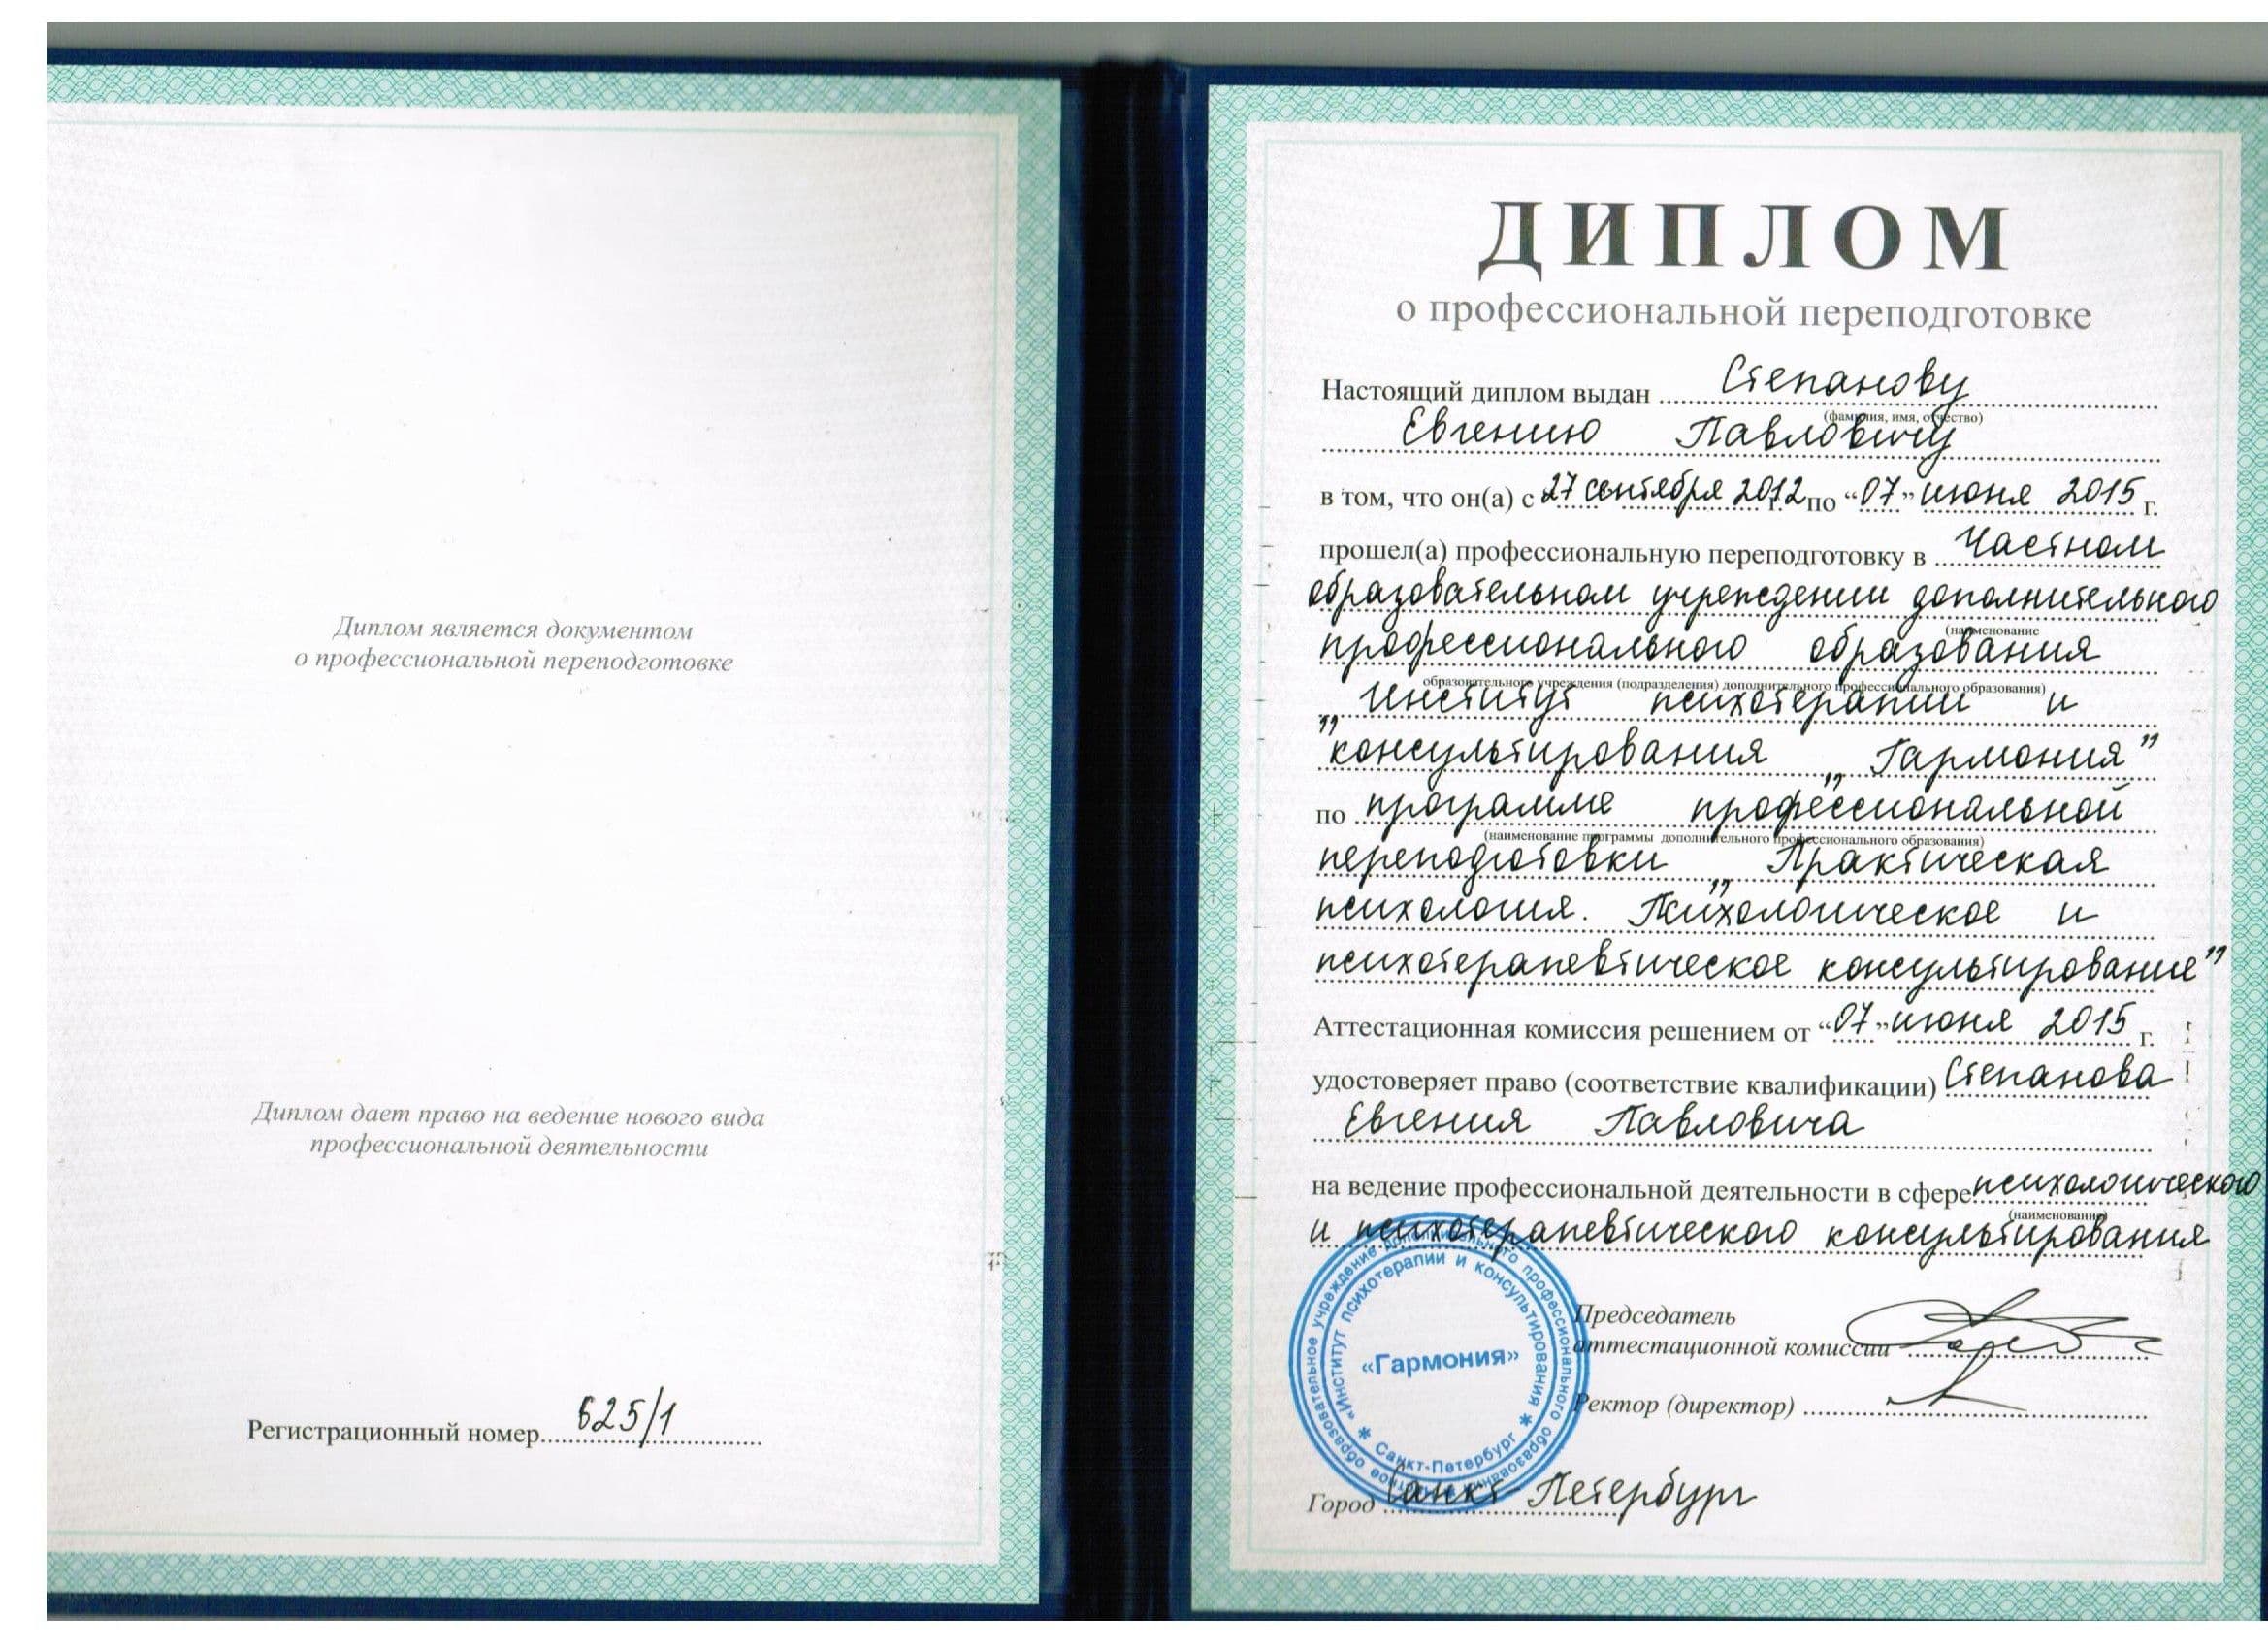 Диплом является документом
о профессиональной переподготовке
Диплом дает право на ведение нового вида
профессиональной деятельности
Регистрационный номер 625/1
ДИПЛОМ
о профессиональной переподготовке
Настоящий диплом выдан Степанову
(фамилия, имя, отчество)
Евгению Павловичу
в том, что он(а) с 27 сентября 2012 г. по “07” июня 2015 г.
прошел(а) профессиональную переподготовку в Частном
образовательном учреждении дополнительного
(наименование
профессионального образования
образовательного учреждения (подразделения) дополнительного профессионального образования)
„Институт психотерапии и
консультирования „Гармония”
по программе профессиональной
(наименование программы дополнительного профессионального образования)
переподготовки „Практическая
психология. Психологическое и
психотерапевтическое консультирование”
Аттестационная комиссия решением от “07” июня 2015 г.
удостоверяет право (соответствие квалификации) Степанова
Евгения Павловича
на ведение профессиональной деятельности в сфере психологического
(наименование)
и психотерапевтического консультирования
Председатель
аттестационной комиссии
Ректор (директор)
Город Санкт-Петербург
образовательное учреждение дополнительного профессионального образования
«Институт психотерапии и консультирования
«Гармония»
Санкт-Петербург